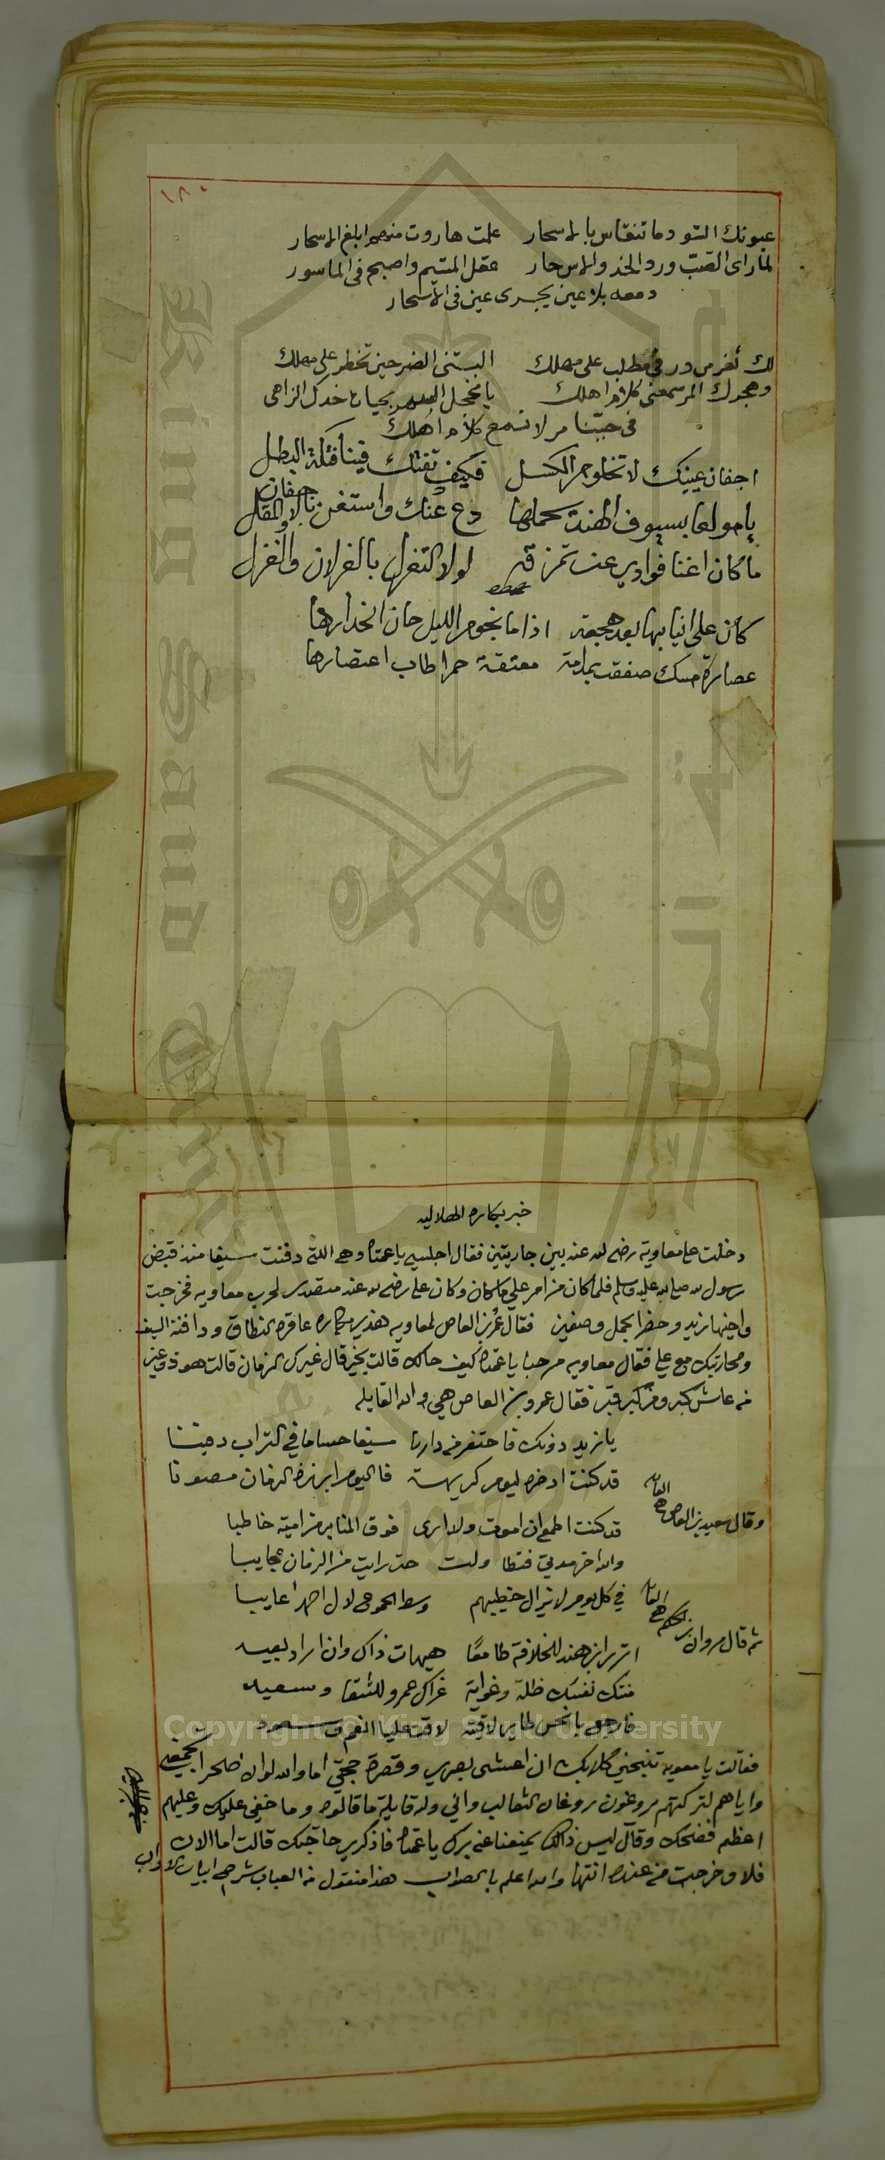 ١٨٠
عيونك السود ما تنقاس بالاسحار علمت هاروت منهم ابلغ الاسحار
لما راى الصب ورد الخد والاس حار عقل المتيم واصبح في الماسور
دمعه بلا عين يجرى عين في الاسحار
لك ثغر من در في مطلب على مهلك البستنى الضر حين تخطر على مهلك
وهجرك المر سمعنى كلام اهلك يا مخجل البدر بحيات خدك الزاهى
في حبنا مر لا تسمع كلام اهلك
اجفان عينك لا تخلو من الكسل فكيف تفتك فينا فتكة البطل
يا مولعا بسيوف الهند يحملها دع عنك واستغن بالاجفان والمقل
ما كان اغنا فوادي عند تمزقه لولا التغزل بالغزلان والغزل
كان على انيابها بعد هجعة اذا ما نجوم الليل حان انحدارها
عصارة مسك صفقت بمدامة معتقة حمرا طاب اعتصارها
خبر بكاره الهلاليه
دخلت على معاوية رضى الله عنه بين جاريتين فقال اجلسى يا عمتاه وهى التى دفنت سيفا منذ قبض
رسول الله صلى الله عليه وسلم فلما كان من امر علي ما كان وكان علي رضى الله عنه متصدر لحرب معاويه فخرجت
واخيها زيد وحضر الجمل وصفين فقال عمرو بن العاص لمعاويه هذه بكاره عاقرة النطاق ودافنة السيف
ومحاربتك مع علي فقال معاويه مرحبا يا عمتاه كيف حالك قالت بخير قال غيرك الزمان قالت هو ذو غير
من عاش كبر ومن كبر قبر فقال عمرو بن العاص هي والله القايله
يا زيد دونك فاحتفر من دارنا سيفا حساما في التراب دفينا
قد كنت ادخره ليوم كريهة فاليوم ابرزه الزمان مصونا
وقال سعيد بن العاص هي القايله
قد كنت اطمع ان اموت ولا ارى فوق المنابر من امية خاطبا
والله اخر مدتي فتطاولت حتى رايت من الزمان عجايبا
في كل يوم لا يزال خطيبهم وسط الجموع لال احمد عايبا
ثم قال مروان بن الحكم هي القايله
اترى ابن هند للخلافة طامعا هيهات ذاك وان اراد بعيد
منتك نفسك ظلة وغواية غراك عمرو للشقا وسعيد
فارجع بانحس طاير لاقيته لاقت عليا
فقالت يا معويه تنبحني كلابك ان اعشى بصري وقصرة حجتي اما والله لولا
واياهم لتركتهم يروغون روغان الثعالب واني وله قايلة ما قالوه وما خفى عليك وعليهم
اعظم فضحك وقال ليس ذالك يمنعنا عن برك يا عمتاه فاذكري حاجتك قالت اما الان
فلا وخرجت من عنده انتها والله اعلم بالصواب هذا منقول من العباب شرح ابيات الاداب
Copyright © King Saud University
King Saud University